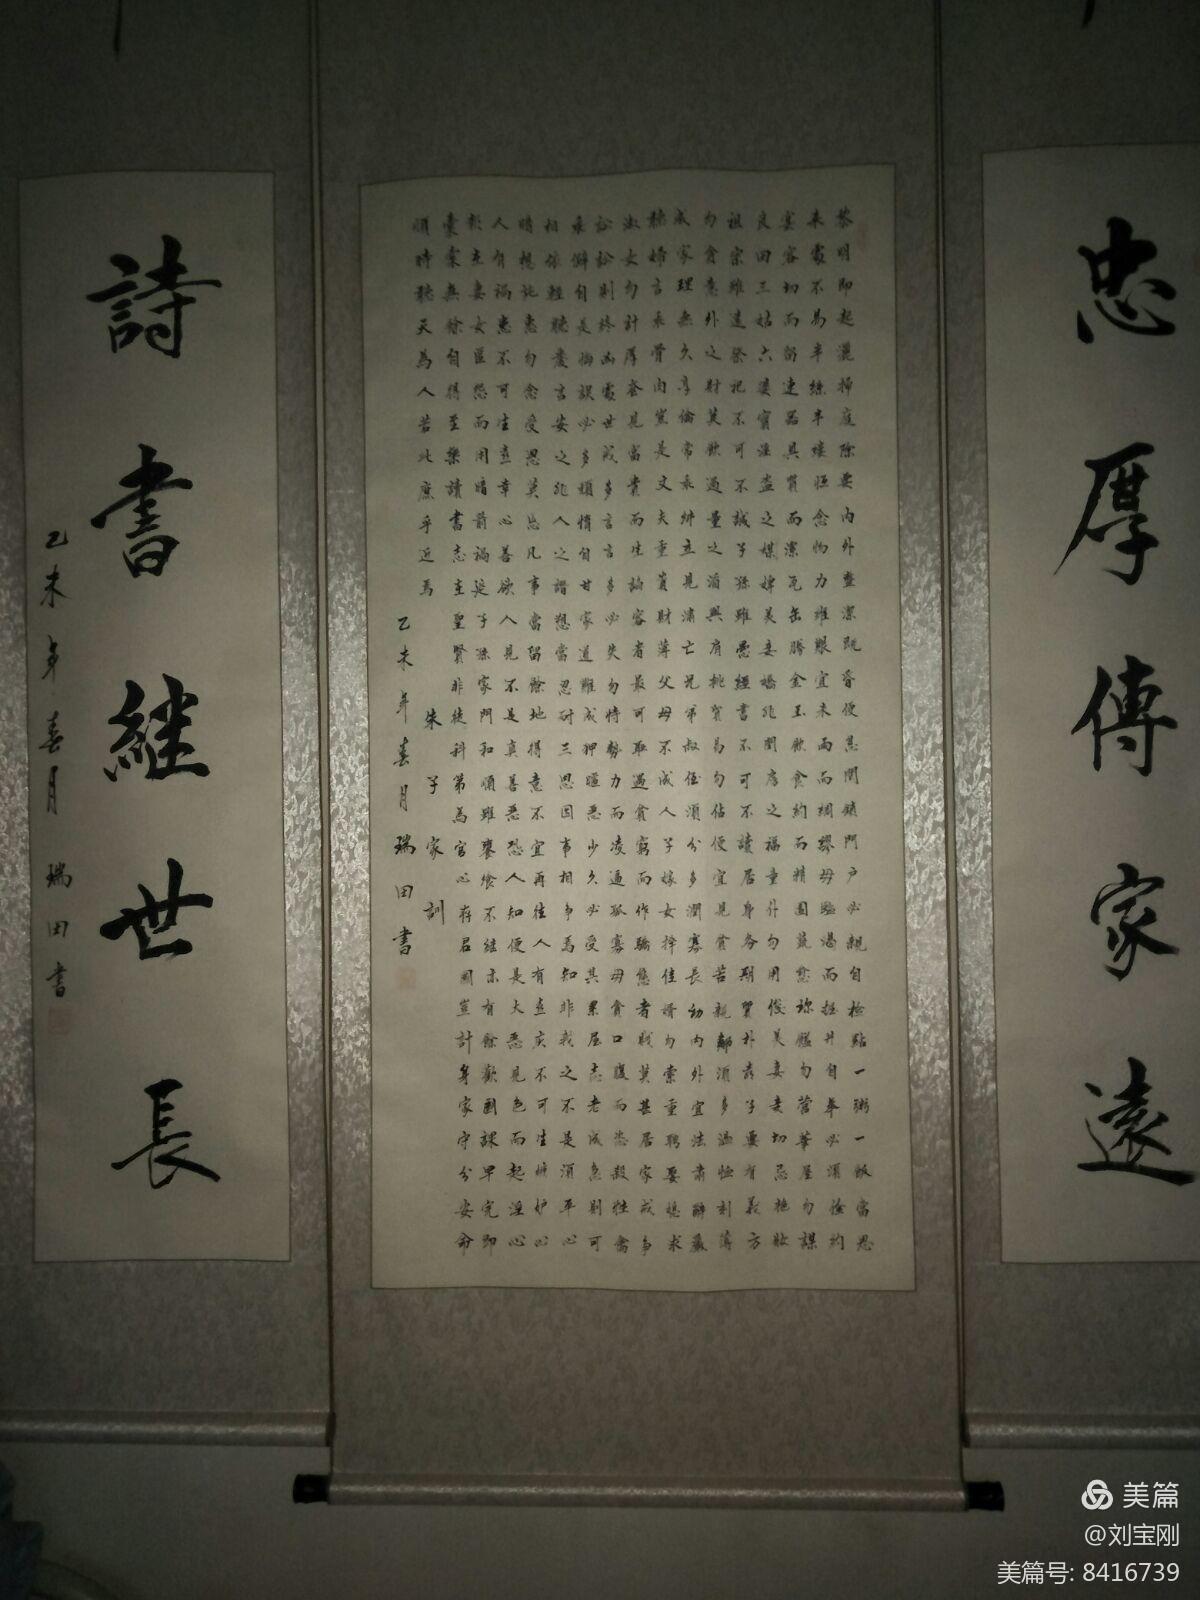 忠厚傳家遠
黎明即起灑掃庭除要內外整潔既昏便息關鎖門戶必親自檢點一粥一飯當思
來處不易半絲半縷恒念物力維艱宜未雨而綢繆毋臨渴而掘井自奉必須儉約
宴客切而留連器具質而潔瓦缶勝金玉飲食約而精園蔬愈珍饈勿營華屋勿謀
良田三姑六婆實淫盜之媒婢美妾嬌非閨房之福童仆勿用俊美妻妾切忌艷妝
祖宗雖遠祭祀不可不誠子孫雖愚經書不可不讀居身務期質朴教子要有義方
勿貪意外之財莫飲過量之酒與肩挑貿易勿佔便宜見貧苦親鄰須多溫恤刻薄
成家理無久享倫常乖舛立見消亡兄弟叔侄須分多潤寡長幼內外宜法肅辭嚴
聽婦言乖骨肉豈是丈夫重資財薄父母不成人子嫁女擇佳婿勿索重聘娶媳求
淑女勿計厚奩見富貴而生諂容者最可恥遇貧窮而作驕態者賤莫甚居家戒爭
訟訟則終凶處世戒多言言多必失勿恃勢力而凌逼孤寡毋貪口腹而恣殺牲禽
乖僻自是悔誤必多頹惰自甘家道難成狎暱惡少久必受其累屈志老成急則可
相依輕聽發言安之非人之譖愬當忍耐三思因事相爭焉知非我之不是須平心
暗想施惠勿念受恩莫忘凡事當留餘地得意不宜再往人有喜慶不可生嫉妒心
人有禍患不可生喜幸心善欲人見不是真善惡恐人知便是大惡見色而起淫心
報在妻女匿怨而用暗箭禍延子孫家門和順雖饔飧不繼亦有餘歡國課早完即
囊橐無餘自得至樂讀書志在聖賢非徒科第為官心存君國豈計身家守分安命
順時聽天為人若此庶乎近焉
朱子家訓
乙未年春月瑞田書
詩書継世長
乙未年春月瑞田書
美篇
@刘宝刚
美篇号: 8416739